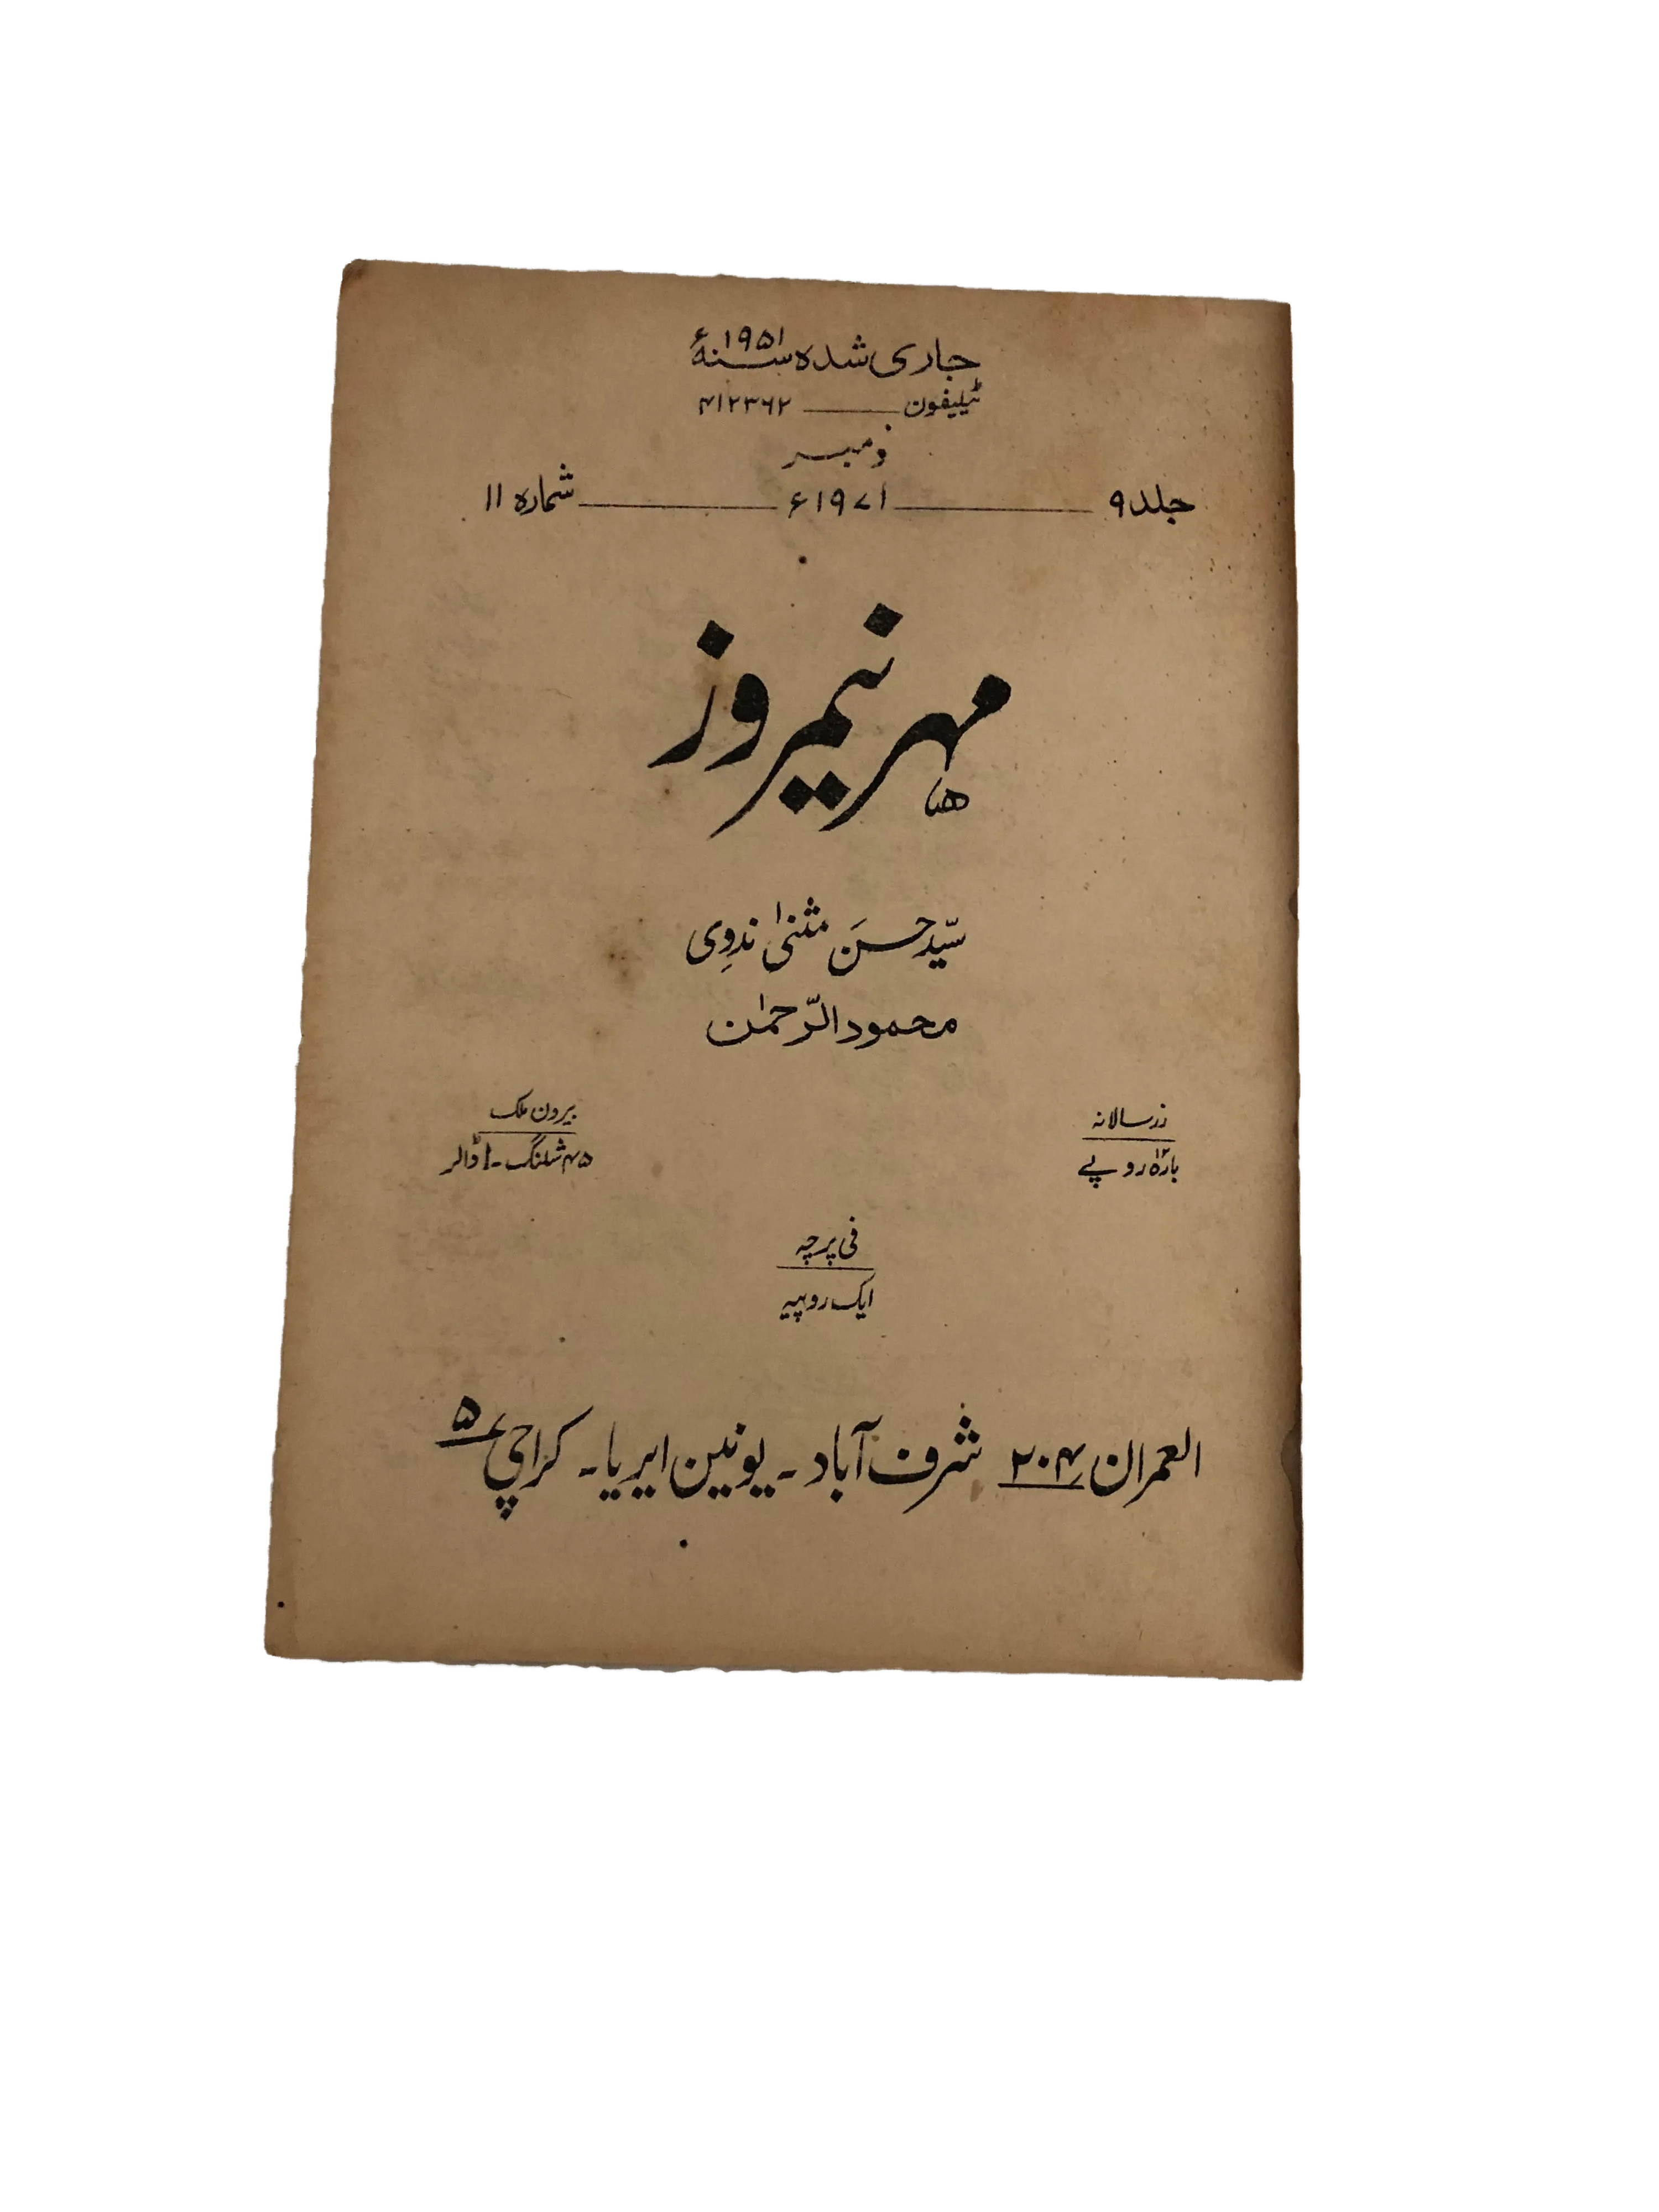 جاری شدہ سنہ ۱۹۵۱ء
ٹیلیفون ـــــــ ۴۱۲۳۶۲
نومبر
جلد ۹ ـــــــ ۱۹۷۱ء ـــــــ شمارہ ۱۱
مہر نیمروز
سیّد حسن مثنیٰ ندوی
محمود الرّحمٰن
زر سالانہ
بارہ ۱۲ روپے
بیرون ملک
۴۵ شلنگ ۔ ڈالر
فی پرچہ
ایک روپیہ
العمران ۲۰۴ شرف آباد ۔ یونین ایریا ۔ کراچی ۵